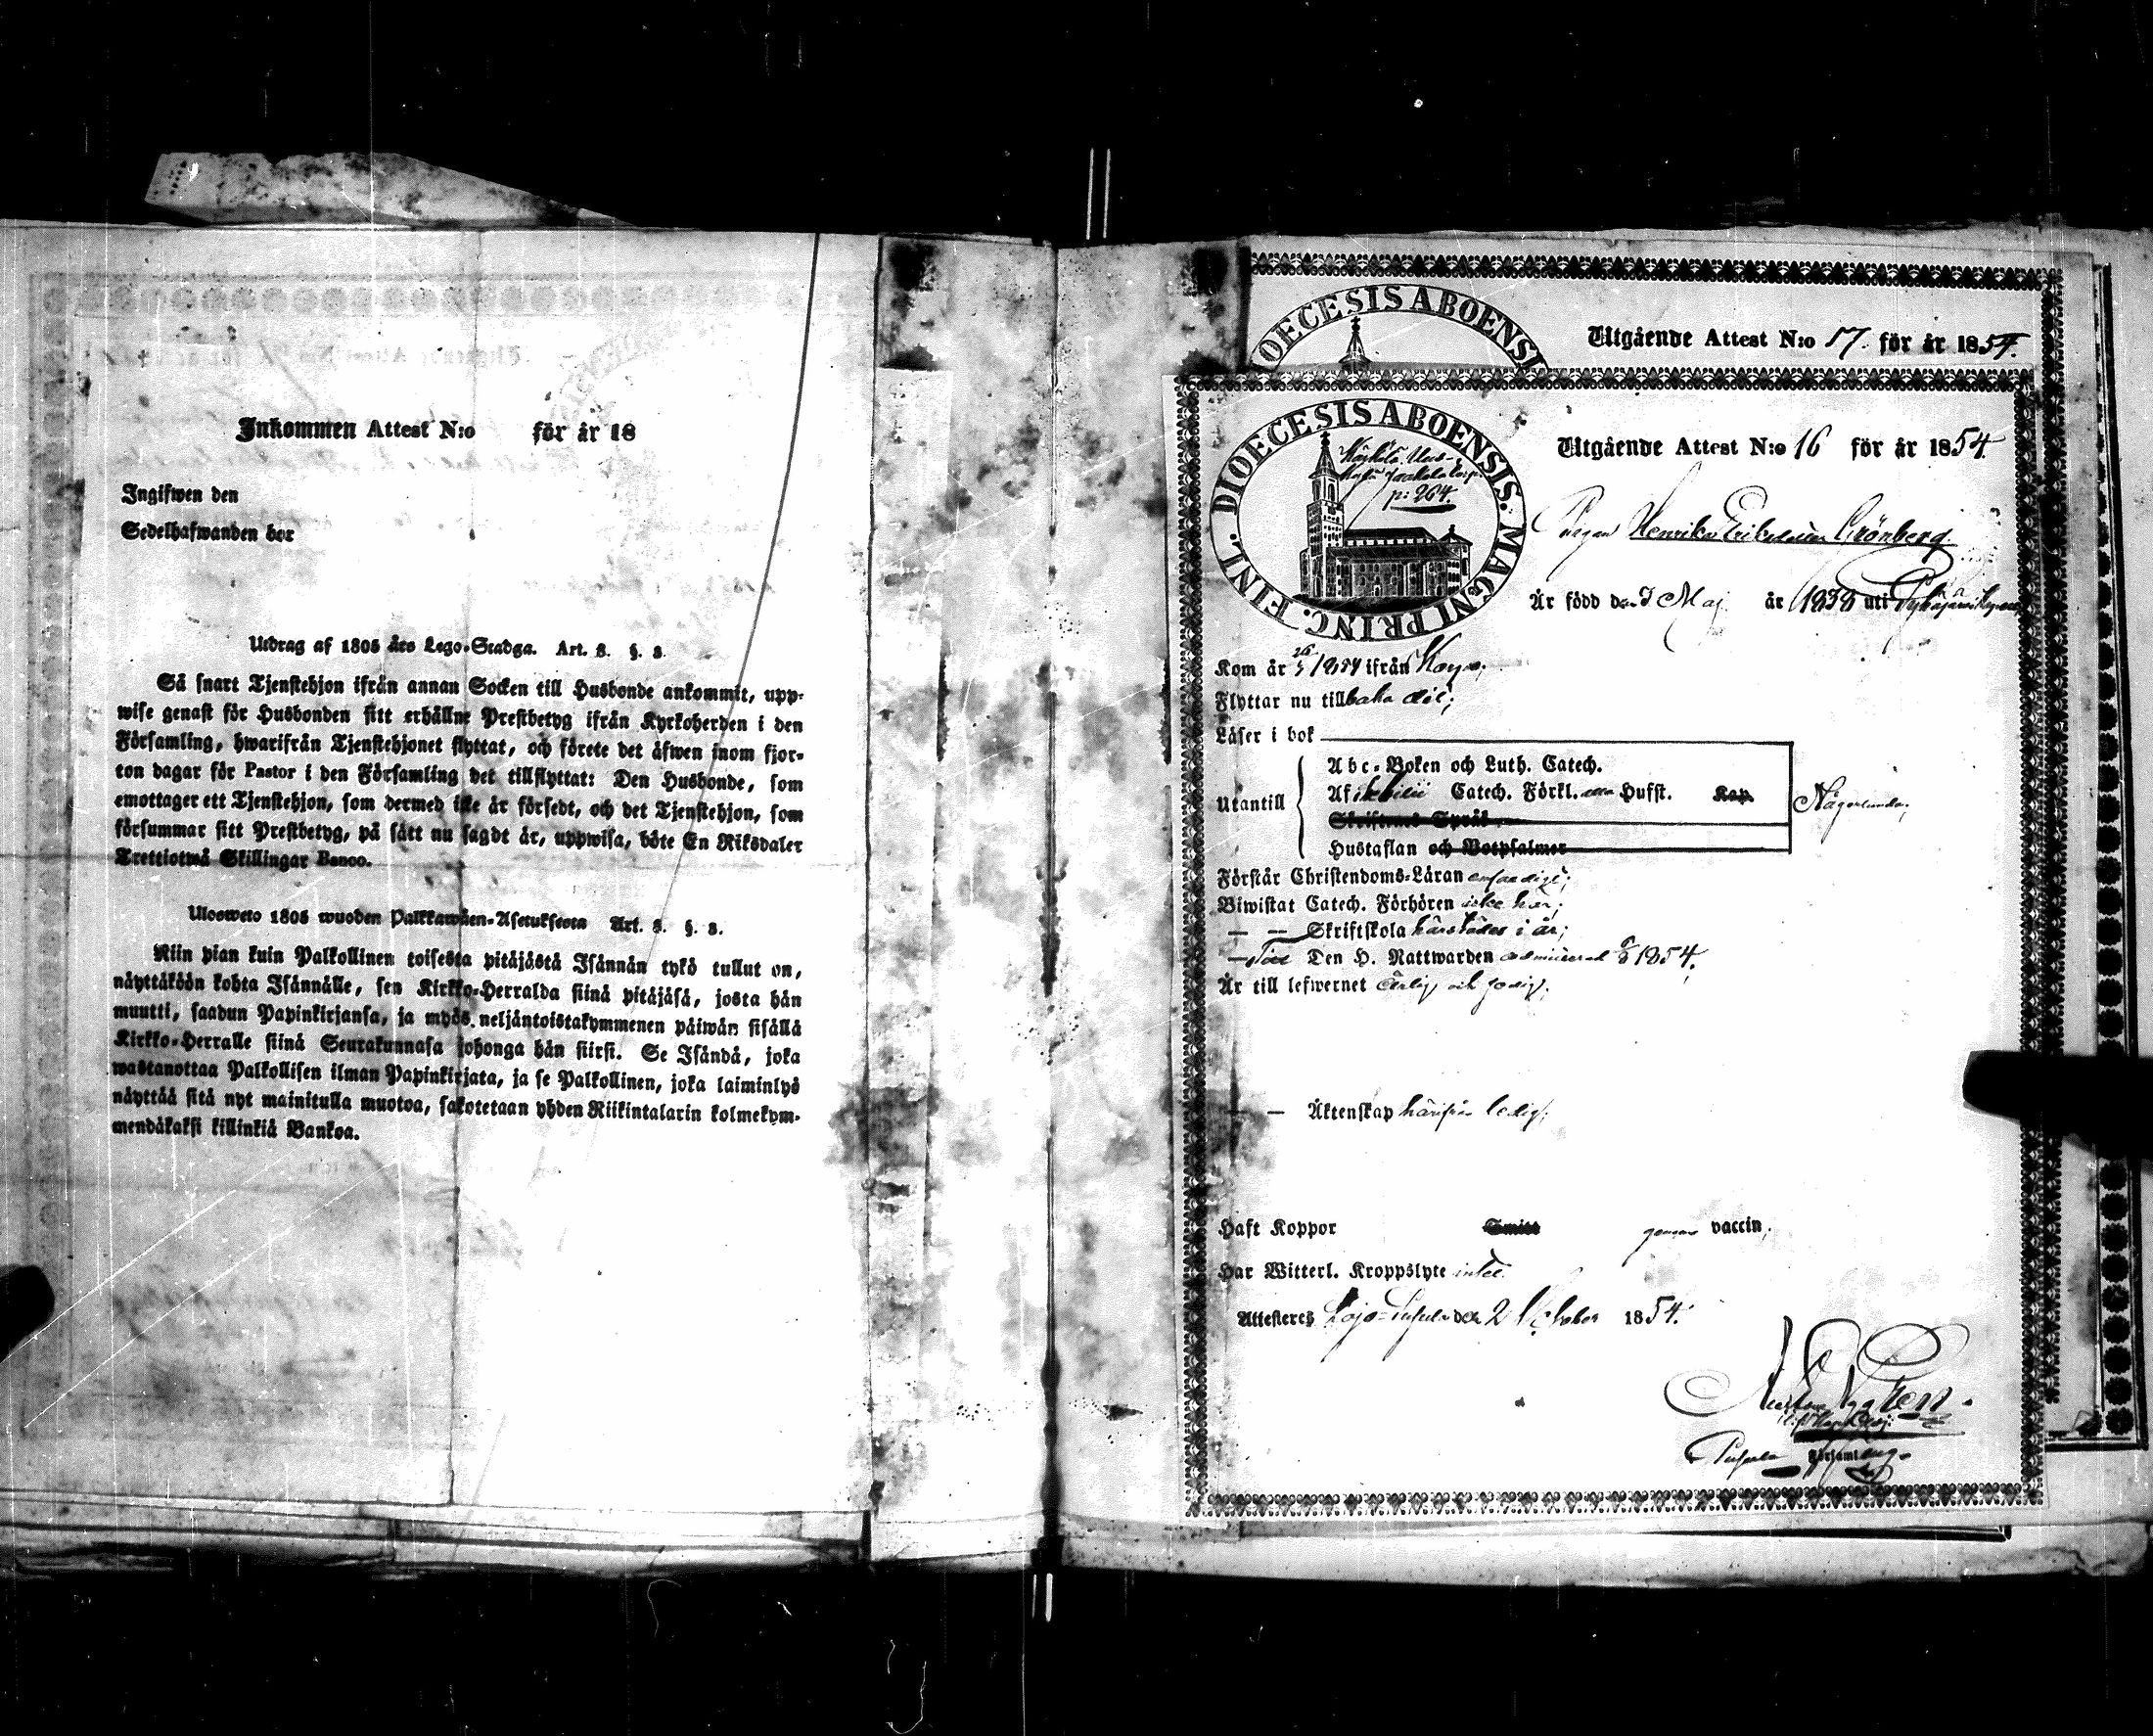 Inkommen Attest N:o för år 18
Ingifwen den
Sedelhafwanden bor
Utdrag af 1805 års Lego-Stadga. Art. 8. §. 3.
Så snart Tjenstehjon ifrån annan Socken till Husbonde ankommit, upp-
wise genast för Husbonden sitt erhållne Prestbetyg ifrån Kyrkoherden i den
Församling, hwarifrån Tjenstehjonet flyttat, och förete det äfwen inom fjor-
ton dagar för Pastor i den Församling det tillflyttat: Den Husbonde, som
emottager ett Tjenstehjon, som dermed icke är försedt, och det Tjenstehjon, som
försummar sitt Prestbetyg, på sätt nu sagdt är, uppwisa, böte En Riksdaler
Trettiotwå Skillingar Banco.
Ulosweto 1805 wuoden Palkkawäen-Asetuksesta Art. 8. §. 3.
Niin pian kuin Palkollinen toisesta pitäjästä Isännän tykö tullut on,
näyttäköön kohta Isännälle, sen Kirkko-Herralda siinä pitäjäsä, josta hän
muutti, saadun Papinkirjansa, ja myös neljäntoistakymmenen päiwän sisällä
Kirkko-Herralle siinä Seurakunnasa johonga hän siirsi. Se Isändä, joka
wastanottaa Palkollisen ilman Papinkirjata, ja se Palkollinen, joka laiminlyö
näyttää sitä nyt mainitulla muotoa, sakotetaan yhden Riikintalarin kolmekym-
mendäkaksi killinkiä Bankoa.
DIOECESIS ABOENSI
Utgående Attest N:o 17. för år 1854.
DIOECESIS ABOENSIS. MAGNI PRINC. FINL.
p: 264
Utgående Attest N:o 16 för år 1854.
Pigan Henrika Eriksdotter Grönberg
Är född den Maj år 1838 uti
Kom år 1854 ifrån
Flyttar nu tillbaka dit;
Läser i bok
Utantill
Abc-Boken och Luth. Catech.
Af Catech. Förkl. Hufst. Kap.
Skriftenes Språk
Hustaflan och Botpsalmer
Någorlunda;
Förstår Christendoms-Läran enfaldigt;
Biwistat Catech. Förhören icke här;
— — Skriftskola härstädes i år;
— Den H. Nattwarden admitterad 1854.
Är till lefwernet ärlig och
— — Äktenskap härifrån ledig;
Haft Koppor Smitt genom vaccin;
Har Witterl. Kroppslyte intet
Attesteres Lojo-Pusula den 2 October 1854.
Pusula Församling